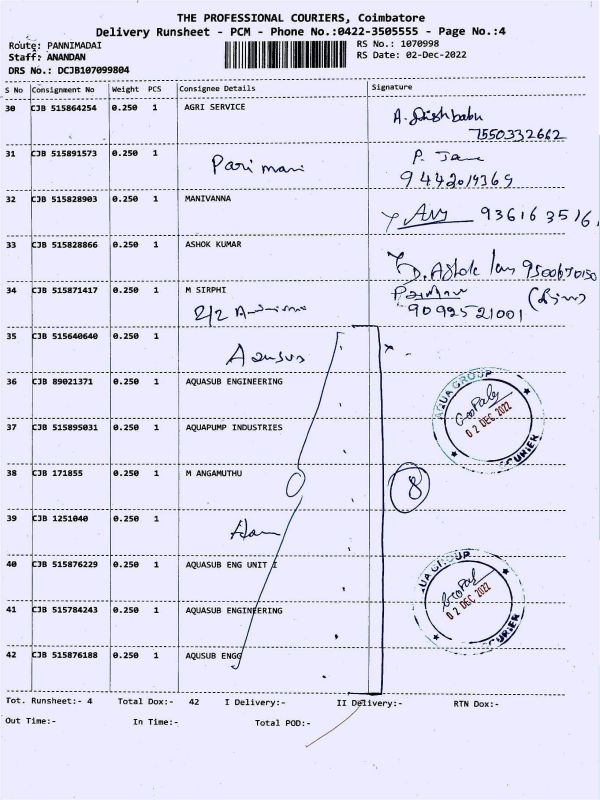 THE PROFESSIONAL COURIERS, Coimbatore
Delivery Runsheet - PCM - Phone No.:0422-3505555 - Page No.:4
Route: PANNIMADAI
RS No.: 1070998
Staff: ANANDAN
RS Date: 02-Dec-2022
DRS No.: DCJB107099804
S No Consignment No Weight PCS Consignee Details Signature
30 CJB 515864254 0.250 1 AGRI SERVICE
7550332662
31 CJB 515891573 0.250 1 Parimani
32 CJB 515828903 0.250 1 MANIVANNA
33 CJB 515828866 0.250 1 ASHOK KUMAR
34 CJB 515871417 0.250 1 M SIRPHI
9092521001
35 CJB 515640640 0.250 1
36 CJB 89021371 0.250 1 AQUASUB ENGINEERING
AQUA GROUP
02 DEC 2022
COURIER
37 CJB 515895031 0.250 1 AQUAPUMP INDUSTRIES
38 CJB 171855 0.250 1 M ANGAMUTHU
8
39 CJB 1251040 0.250 1
40 CJB 515876229 0.250 1 AQUASUB ENG UNIT I
AQUA GROUP
02 DEC 2022
COURIER
41 CJB 515784243 0.250 1 AQUASUB ENGINEERING
42 CJB 515876188 0.250 1 AQUSUB ENGG
Tot. Runsheet:- 4 Total Dox:- 42 I Delivery:- II Delivery:- RTN Dox:-
Out Time:- In Time:- Total POD:-